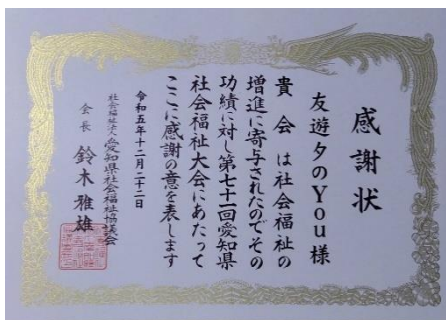 感謝状
友遊夕のYou様
貴会は社会福祉の
増進に寄与されたのでその
功績に対し第七十一回愛知県
社会福祉大会にあたって
ここに感謝の意を表します
令和五年十二月二十二日
社会福祉法人愛知県社会福祉協議会
会長 鈴木雅雄